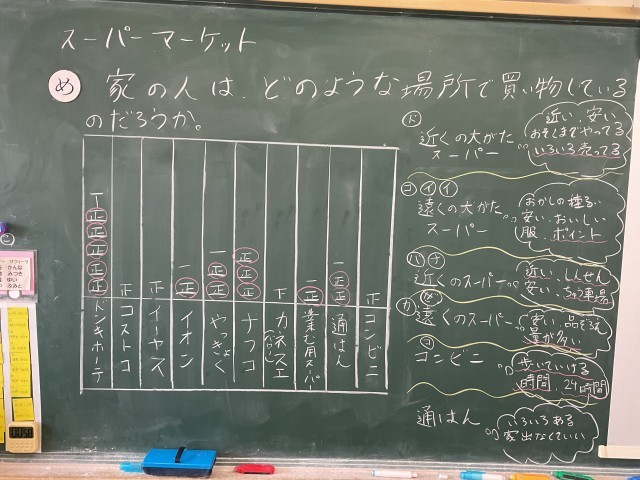 スーパーマーケット
め 家の人は、どのような場所で買い物している
のだろうか。
正正正正正一 ドンキホーテ
正 コストコ
正 イーヤス
正一 イオン
正正一 やっきょく
正正正 ナフコ
下 カネスエ
正一 業む用スーパー
正正一 通はん
正 コンビニ
ド
近くの大がた
スーパー
近い、安い
おそくまでやってる
いろいろ売ってる
コ イ イ
遠くの大がた
スーパー
おかしの種るい
安い、おいしい
服 ポイント
ナ
近くのスーパー
近い、しんせん
安い、ちゅう車場
カ
遠くのスーパー
安い
量が多い
コ
コンビニ
歩いていける
時間 24時間
通はん
いろいろある
家出なくていい